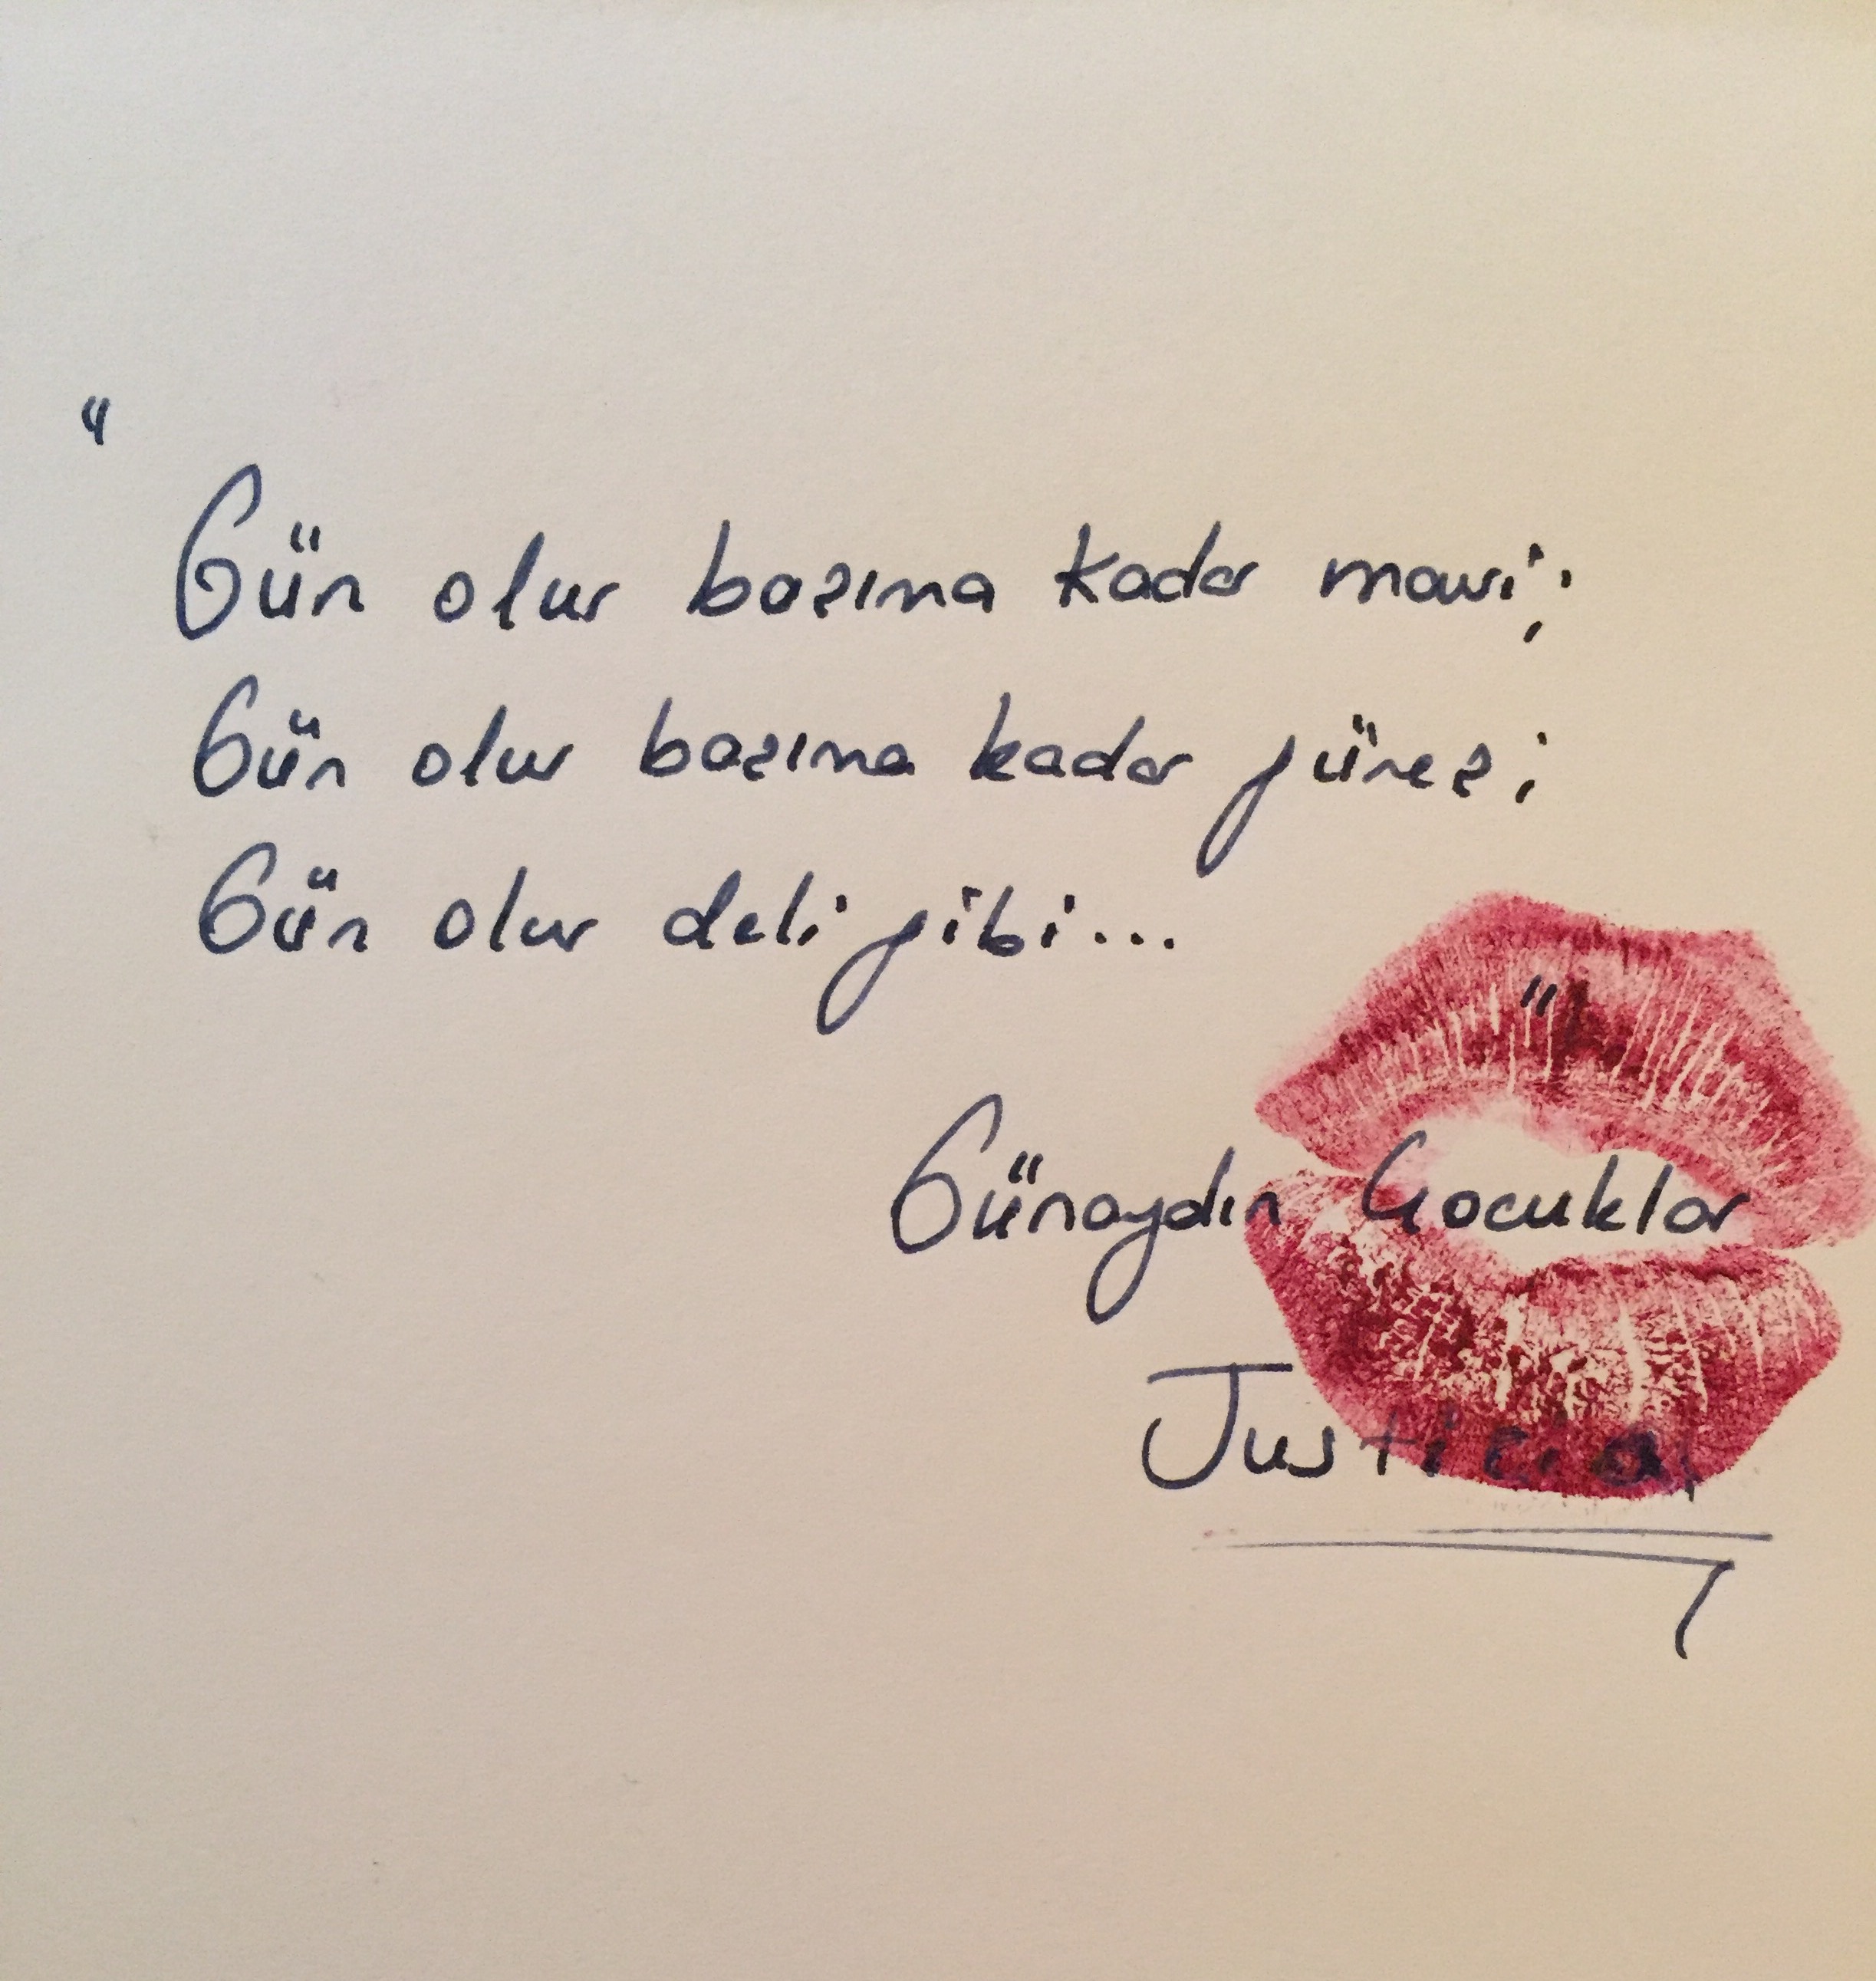 "
Gün olur başıma kadar mavi;
Gün olur başıma kadar güneş;
Gün olur deli gibi...
"
Günaydın Çocuklar
Justicia